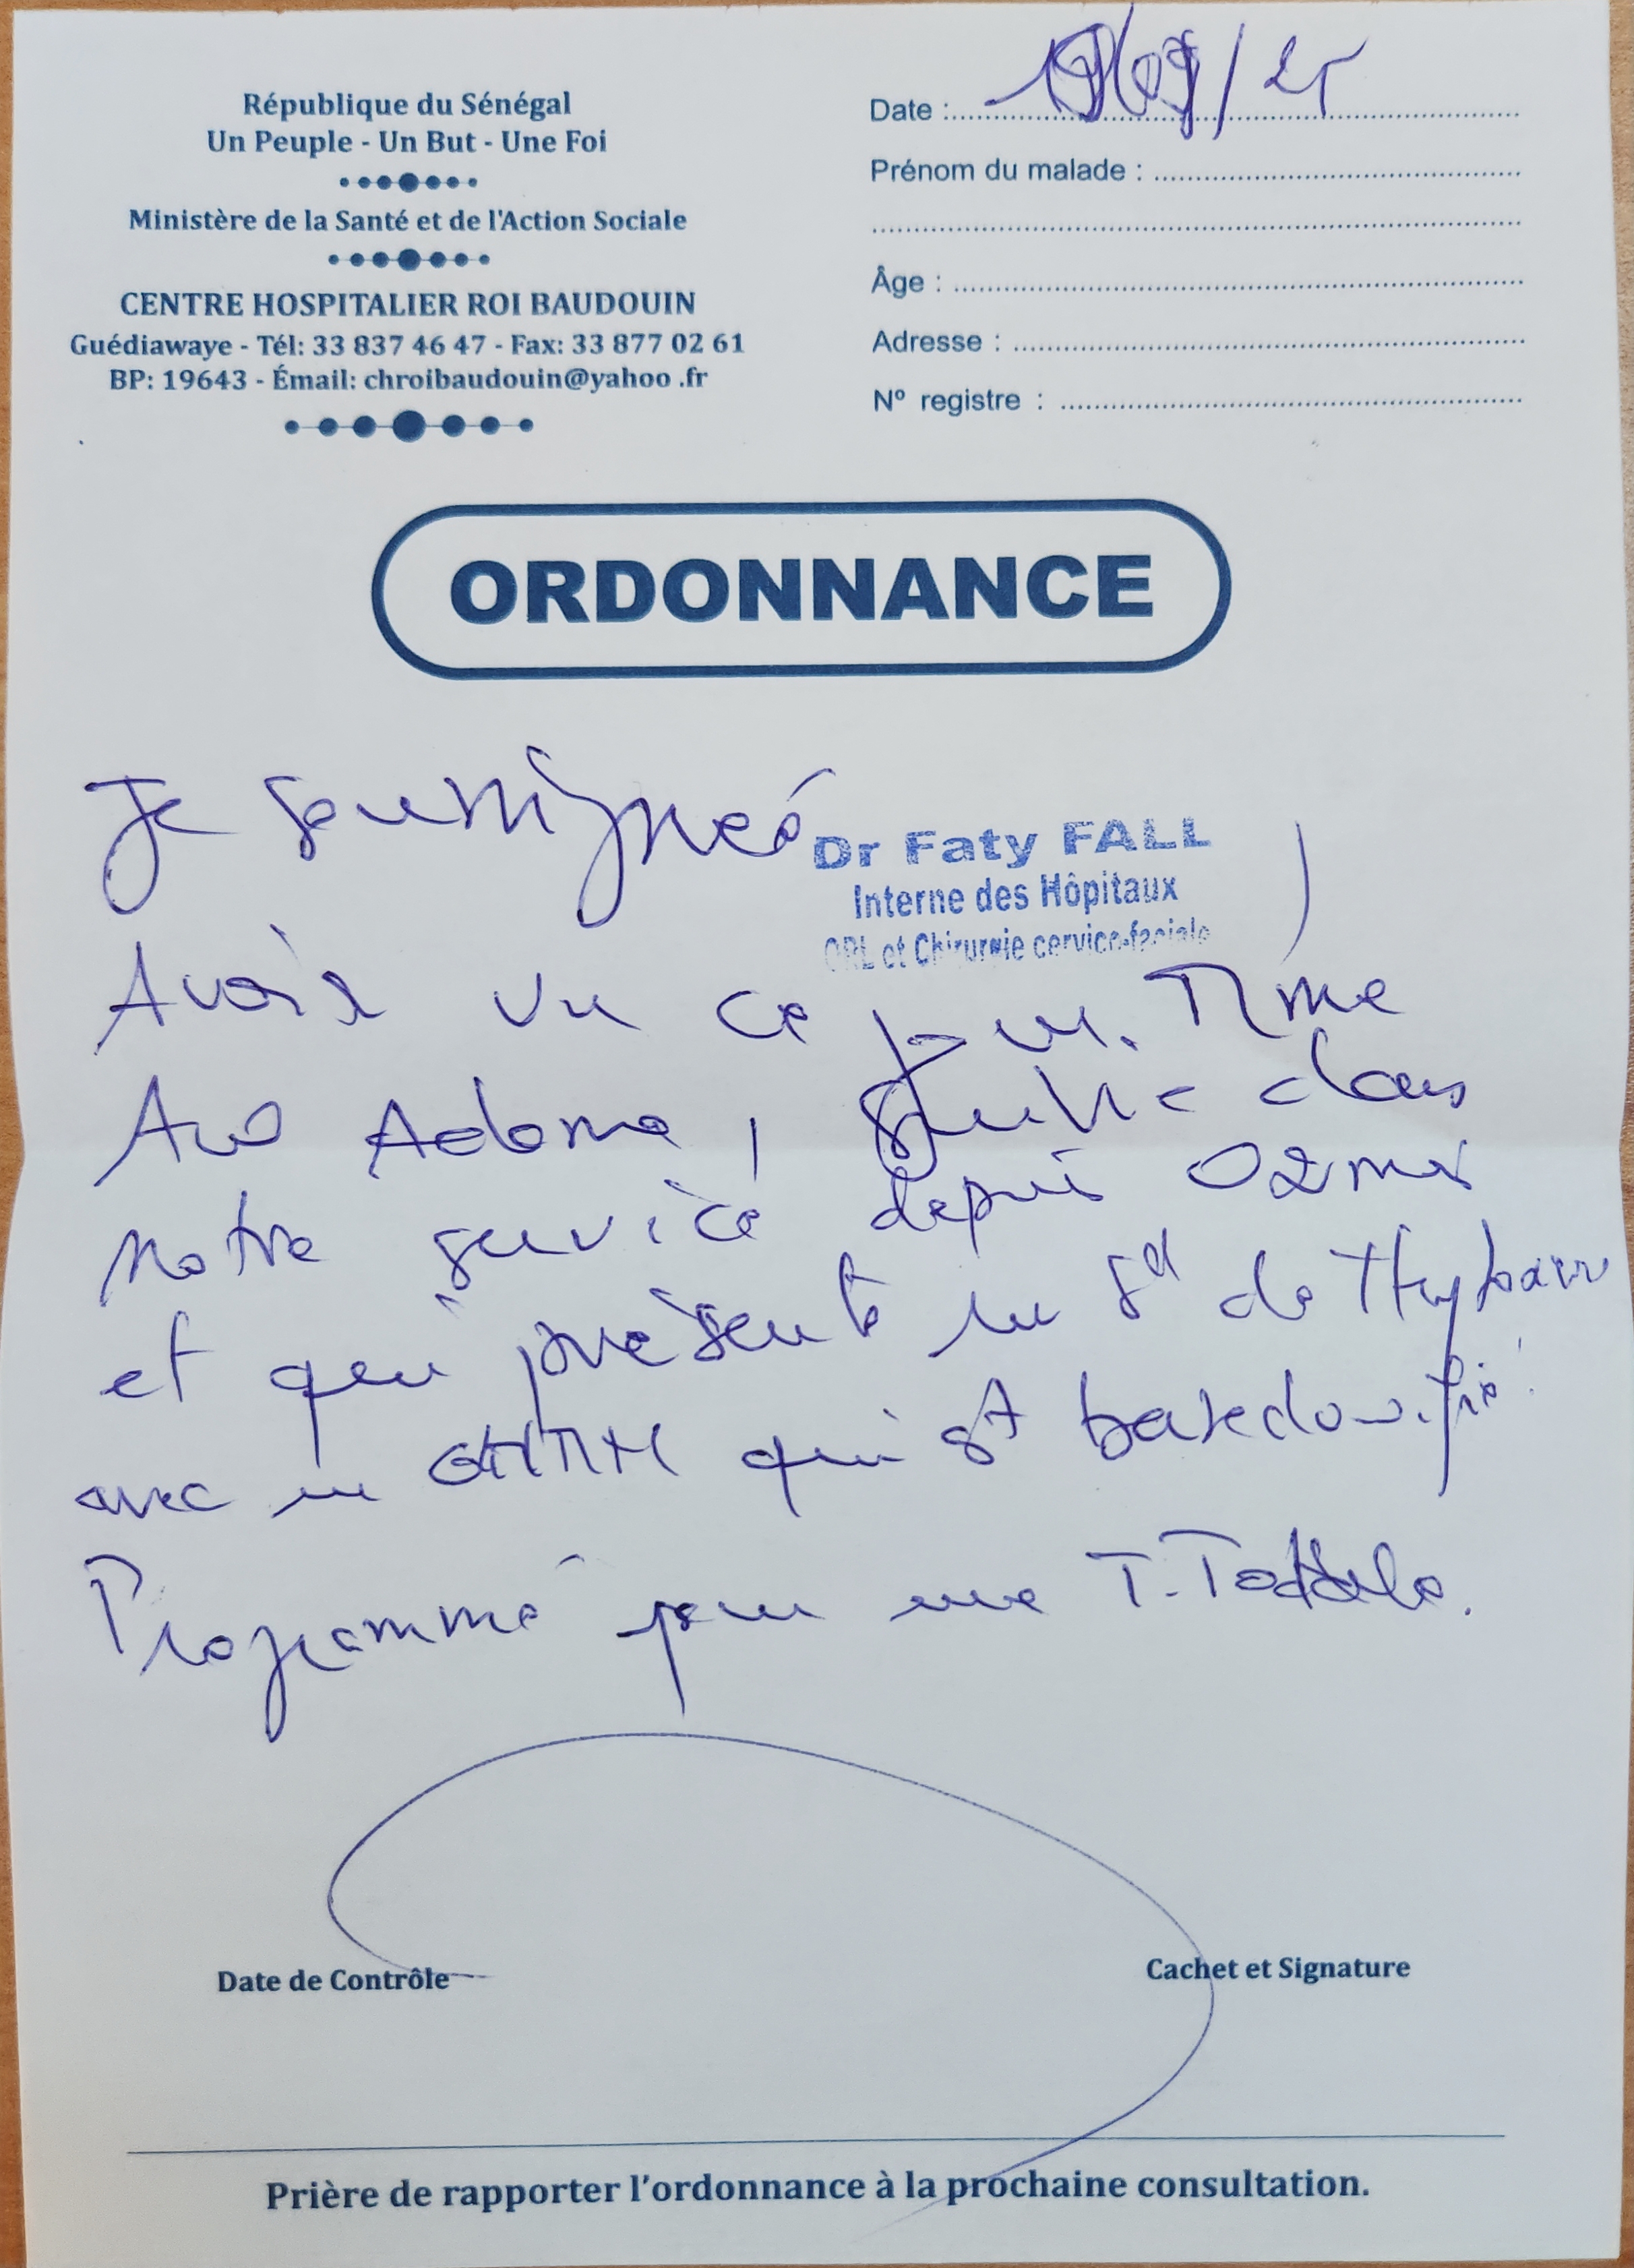 République du Sénégal
Un Peuple - Un But - Une Foi
Ministère de la Santé et de l'Action Sociale
CENTRE HOSPITALIER ROI BAUDOUIN
Guédiawaye - Tél: 33 837 46 47 - Fax: 33 877 02 61
BP: 19643 - Émail: chroibaudouin@yahoo .fr
Date :
Prénom du malade :
Âge :
Adresse :
Nº registre :
ORDONNANCE
Je soussigneé
Dr Faty FALL
Interne des Hôpitaux
ORL et Chirurgie cervico-faciale
Avoir vu ce jour. Mme
Adama, suivie dans
notre service depuis 02 mois
et qui présente un sd de
avec un GHMN qui st basedowifié.
Programmé pour une T. Totale.
Date de Contrôle
Cachet et Signature
Prière de rapporter l'ordonnance à la prochaine consultation.